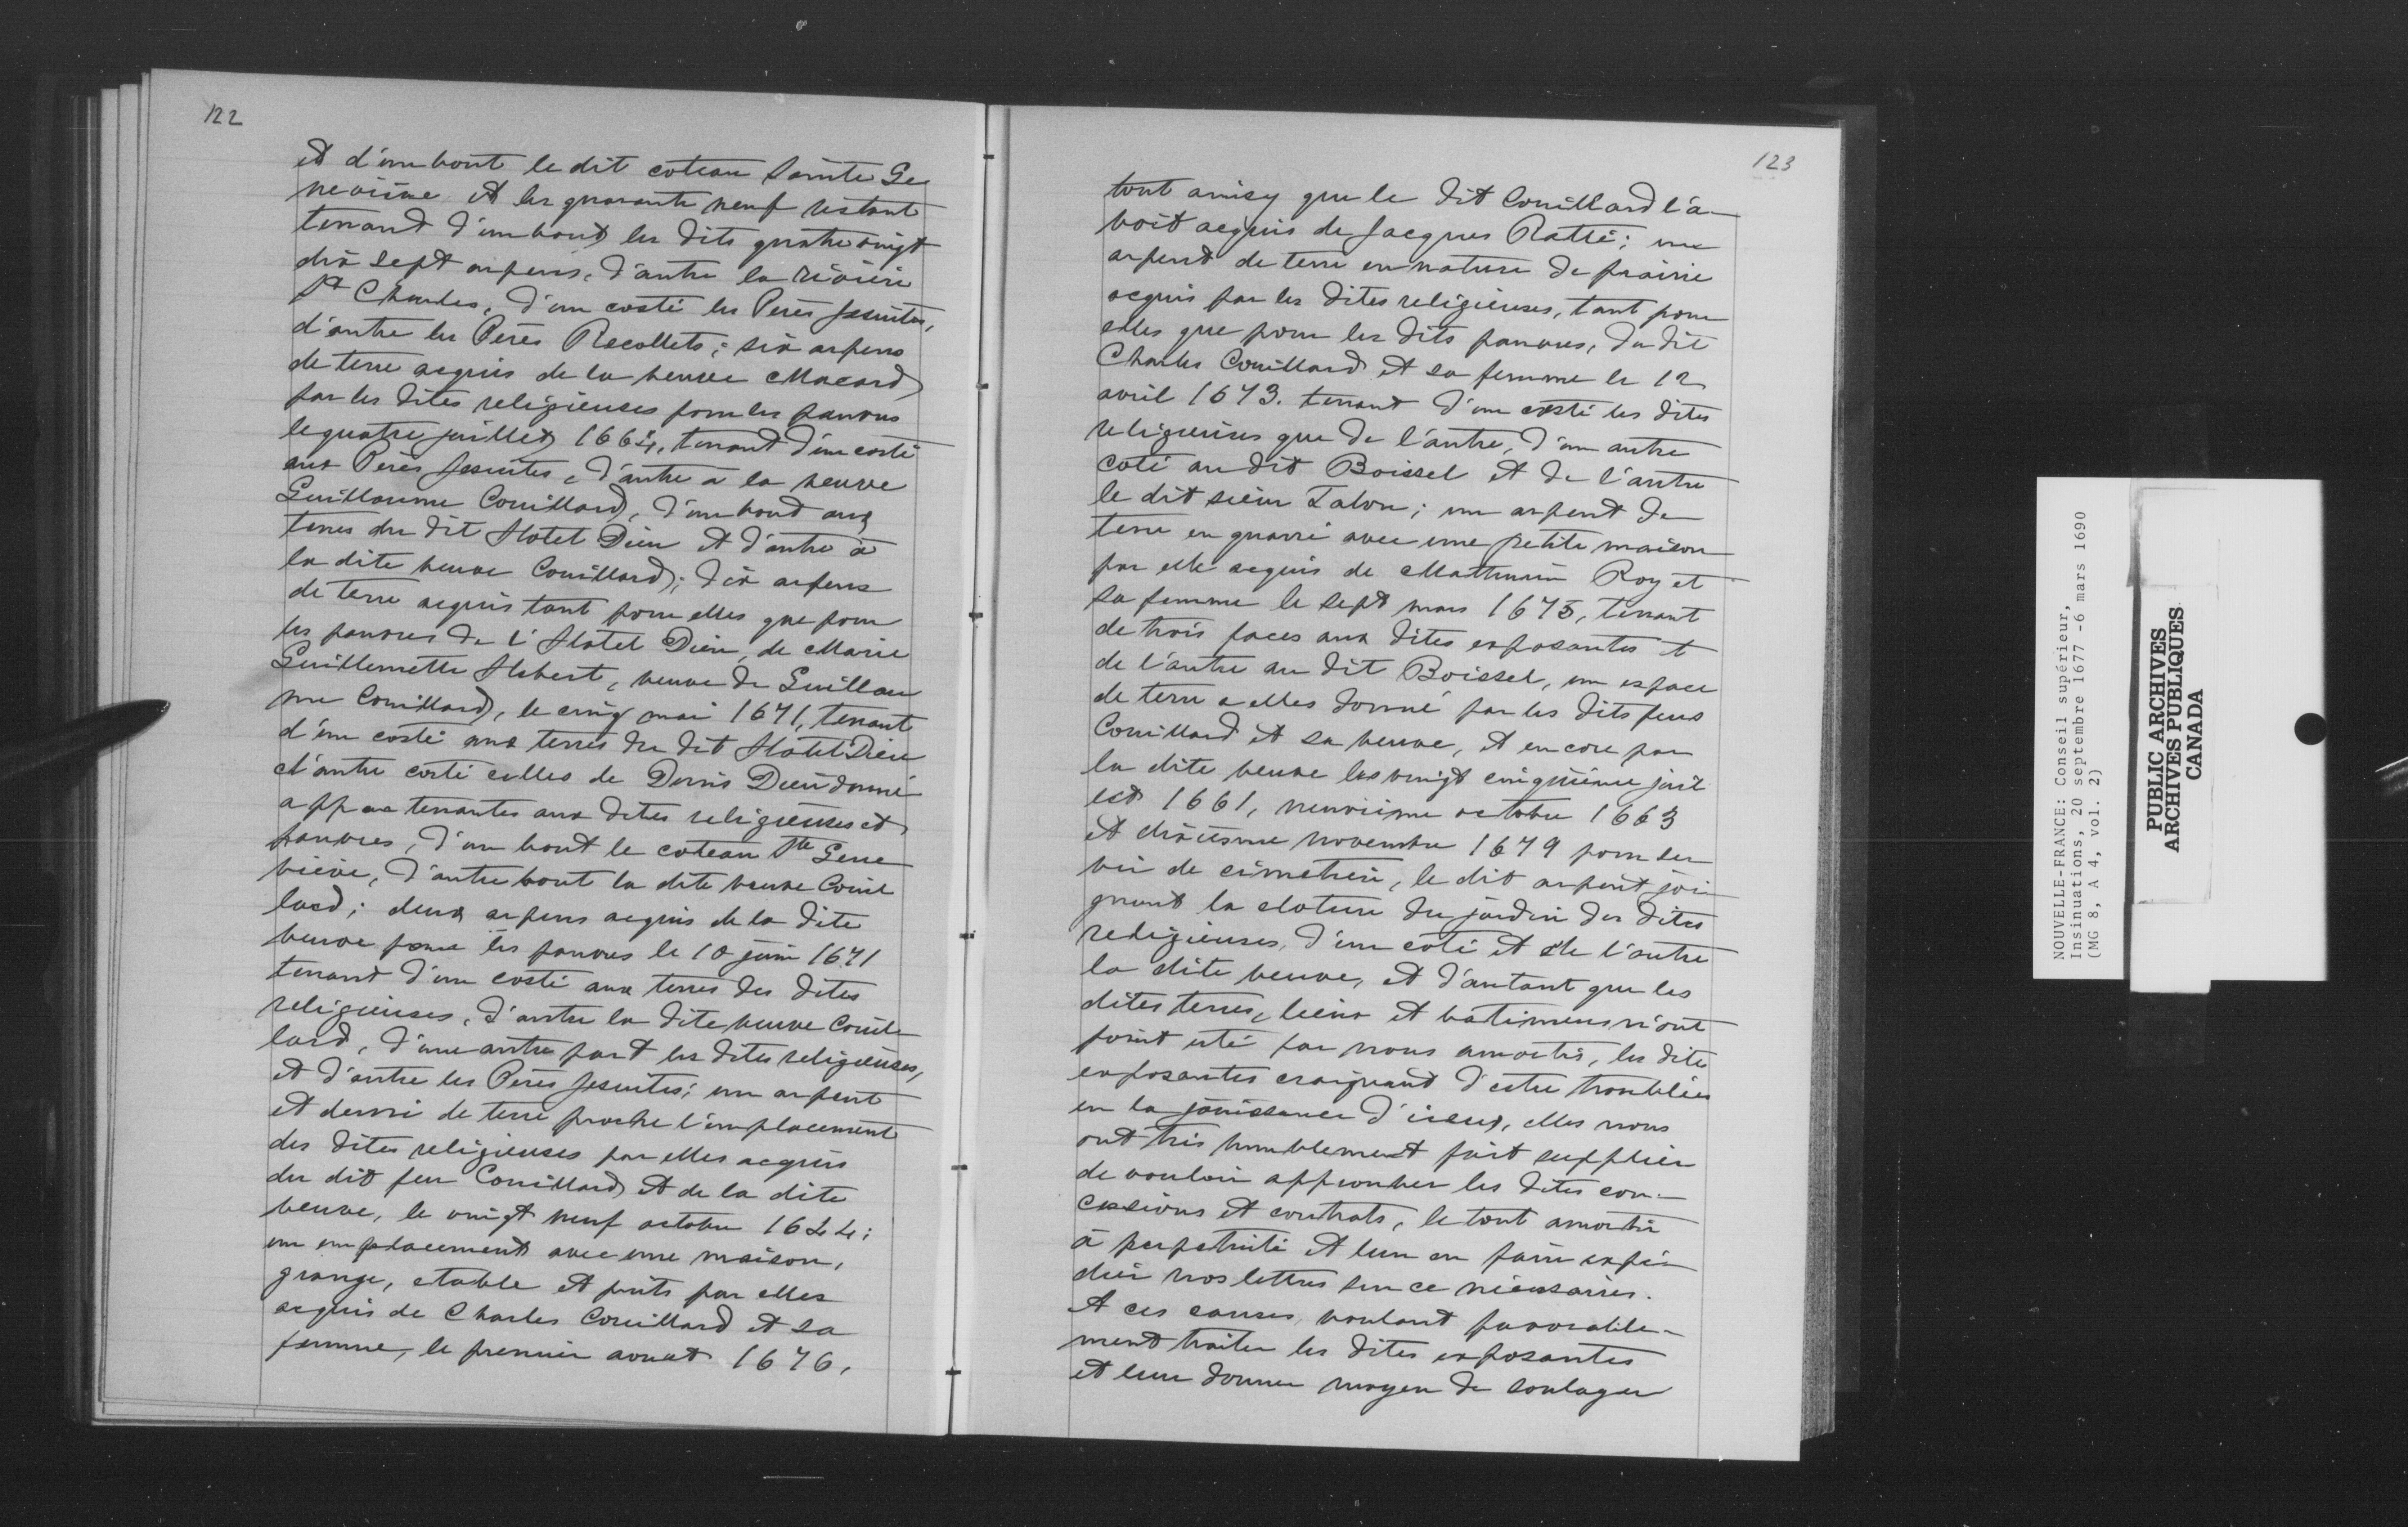 122
et d'un bout le dit coteau Sainte Ge
neviève et les quarante neuf restant
tenant d'un bout les dits quatre vingt
dix sept arpens, d'autre la rivière
St Charles, d'un costé les Peres Jesuites,
d'autre les Pères Recollets; six arpens
de terre acquis de la veuve Macard
par les dites religieuses pour les pauvres
le quatre juillet 1664, tenant d'un costé
aux Pères Jesuites, d'autre a la veuve
Guillaume Couillard, d'un bout aux
terres du dit Hotel Dieu et d'autre à
la dite veuve Couillard; dix arpens
de terre acquis tant pour elles que pour
les pauvres de l'Hotel Dieu, de Marie
Guillemette Hebert, veuve de Guillau
me Couillard, le cinq mai 1671, tenant
d'un costé aux terres du dit Hotel Dieu
d'autre costé celles de Denis Dieudonné
appartenantes aux dites religieuses et
pauvres, d'un bout le coteau Ste Gene
viève, d'autre bout la dite veuve Couil
lard; deux arpens acquis de la dite
veuve pour les pauvres le 10 juin 1671
tenant d'un costé aux terres des dites
religieuses, d'autre la dite veuve Couil
lard, d'une autre part les dites religieuses,
et d'autre les Pères Jesuites; un arpent
et demi de terre proche l'emplacement
des dites religieuses par elles acquis
du dit feu Couillard et de la dite
veuve, le vingt neuf octobre 1644;
un emplacement avec une maison,
grange, etable et puits par elles
acquis de Charles Couillard et sa
femme, le premier aoust 1676,
123
tout ainsy que le dit Couillard l'a-
voit acquis de Jacques Ratté; un
arpent de terre en nature de prairie
acquis par les dites religieuses, tant pour
elles que pour les dits pauvres, du dit
Charles Couillard et sa femme le 12
avril 1673. tenant d'un costé les dites
religieuses que de l'autre, d'un autre
coté au dit Boissel et de l'autre
le dit sieur Talon; un arpent de
terre en quarré avec une petite maison
par elle acquis de Mathurin Roy et
sa femme le sept mars 1675, tenant
de trois faces aux dites exposantes et
de l'autre au dit Boissel, un espace
de terre a elles donné par les dits feus
Couillard et sa veuve, et encore par
la dite veuve les vingt cinquième juil
let 1661, neuvième octobre 1663
et dixiesme novembre 1679 pour ser
vir de cimetière, le dit arpent joi
gnant la cloture du jardin des dites
religieuses, d'un coté et de l'autre
la dite veuve, et d'autant que les
dites terres, lieux et batimens n'ont
point esté par nous amortis, les dites
exposantes craignant d'estre troublées
en la jouissance d'iceux, elles nous
ont très humblement fait supplier
de vouloir approuver les dites con-
cessions et contrats, le tout amortir
à perpetuité et leur en faire expé-
dier nos lettres sur ce nécessaires.
A ces causes, voulant favorable-
ment traiter les dites exposantes
et leur donner moyen de soulager
NOUVELLE-FRANCE: Conseil supérieur,
Insinuations, 20 septembre 1677 -6 mars 1690
(MG 8, A 4, vol. 2)
PUBLIC ARCHIVES
ARCHIVES PUBLIQUES
CANADA